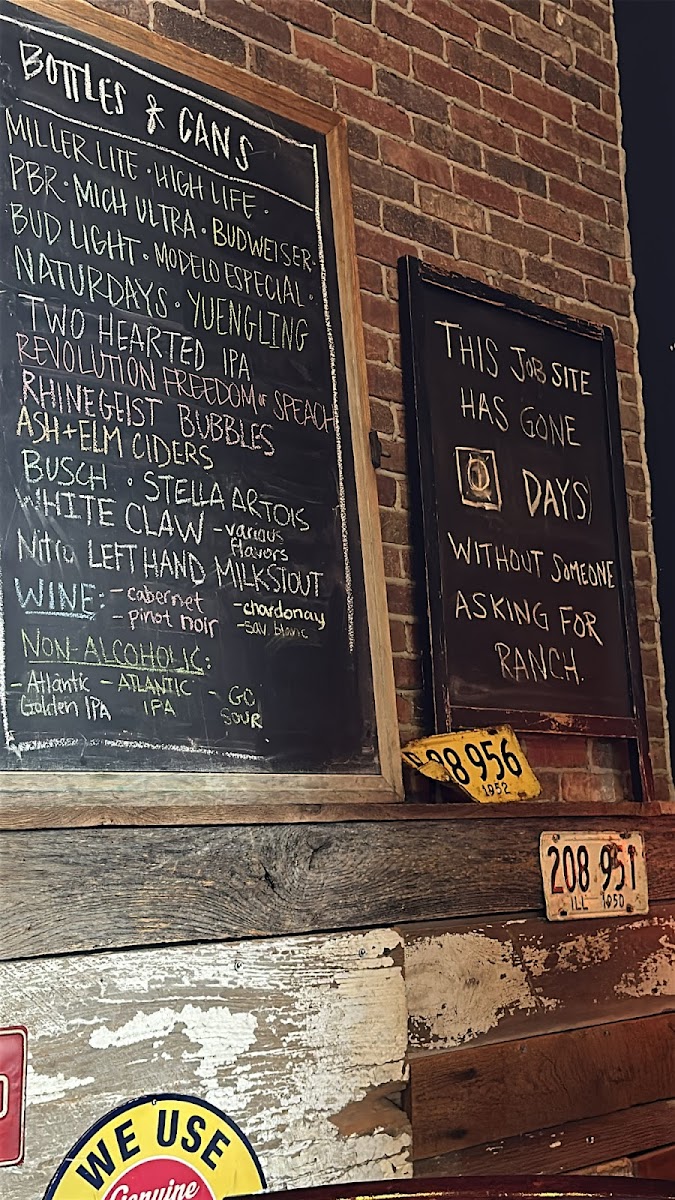 BOTTLES & CANS
MILLER LITE · HIGH LIFE ·
PBR · MICH ULTRA · BUDWEISER ·
BUD LIGHT · MODELO ESPECIAL ·
NATURDAYS · YUENGLING
TWO HEARTED IPA
REVOLUTION FREEDOM OF SPEACH
RHINEGEIST BUBBLES
ASH + ELM CIDERS
BUSCH · STELLA ARTOIS
WHITE CLAW - various
flavors
Nitro LEFT HAND MILK STOUT
WINE: - cabernet - chardonay
- pinot noir - sav. blanc
NON-ALCOHOLIC:
- Atlantic - ATLANTIC - GO
Golden IPA IPA SOUR
THIS JOB SITE
HAS GONE
0 DAYS
WITHOUT SOMEONE
ASKING FOR
RANCH.
98 956
1952
208 951
ILL 1950
WE USE
Genuine